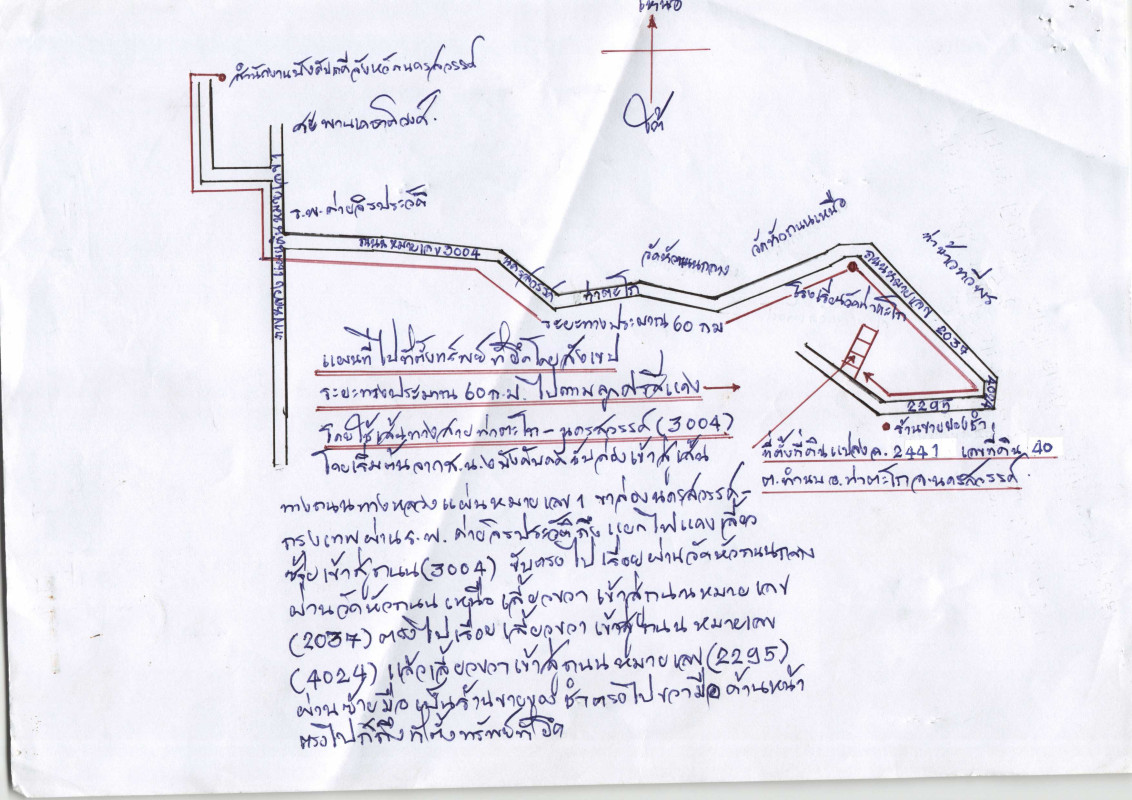 เหนือ
สำนักงานบังคับคดีจังหวัดนครสวรรค์
ใต้
ร.พ. ค่ายจิรประวัติ
ทางหลวงแผ่นดินหมายเลข 1
ถนนหมายเลข 3004
นครสวรรค์
ท่าตะโก
วัดหัวถนนกลาง
วัดหัวถนนเหนือ
ถนนหมายเลข 2037
โรงเรียนวัดท่าตะโก
ระยะทางประมาณ 60 กม
4024
2295
ร้านขายของชำ
แผนที่ไปที่ตั้งทรัพย์ที่ยึดโดยสังเขป
ระยะทางประมาณ 60 ก.ม. ไปตามลูกศรสีแดง
โดยใช้เส้นทางสายท่าตะโก - นครสวรรค์ (3004)
โดยเริ่มต้นจากส.น.ง บังคับคดี เข้าสู่เส้น
ที่ตั้งที่ดินแปลง ฉ. 2441 เลขที่ดิน 40
ต.ทำนบ อ.ท่าตะโก จ.นครสวรรค์
ทางถนนทางหลวงแผ่นหมายเลข 1 ขาล่องนครสวรรค์ -
กรุงเทพผ่าน ร.พ. ค่ายจิรประวัติ ถึง แยกไฟแดงเลี้ยว
ซ้าย เข้าสู่ถนน (3004) ขับตรงไปเรื่อยผ่านวัดหัวถนนกลาง
ผ่านวัดหัวถนนเหนือ เลี้ยวขวา เข้าสู่ถนนหมายเลข
(2037) ตรงไปเรื่อย เลี้ยวขวา เข้าสู่ถนนหมายเลข
(4024) แล้วเลี้ยวขวาเข้าสู่ถนนหมายเลข (2295)
ผ่านซ้ายมือ เป็นร้านขายของชำตรงไปขวามือด้านหน้า
ตรงไปก็ถึงที่ตั้งทรัพย์ที่ยึด